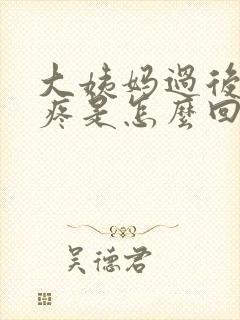 大姨妈過後
疼是怎麼回
吴德君